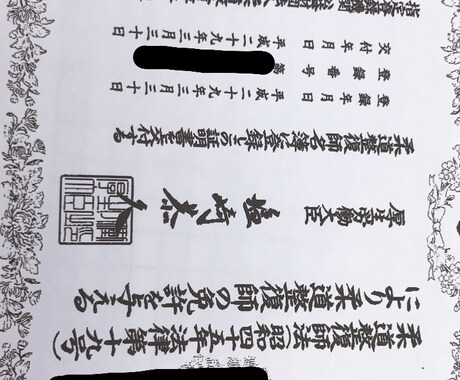 柔道整復師法(昭和四十五年法律第十九号)
により柔道整復師の免許を与える
厚生労働大臣 塩崎恭久
柔道整復師名簿に登録しこの証明書を交付する
登録年月日 平成二十九年三月三十日
登録番号 第
交付年月日 平成二十九年三月三十日
指定登録機関 公益財団法人